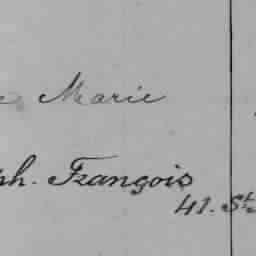 e, Marie
ph. François
41. St.